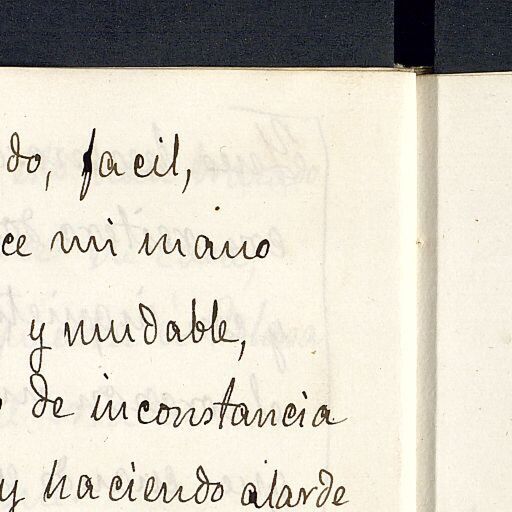 do, facil,
ce mi mano
y mudable,
de inconstancia
y haciendo alarde